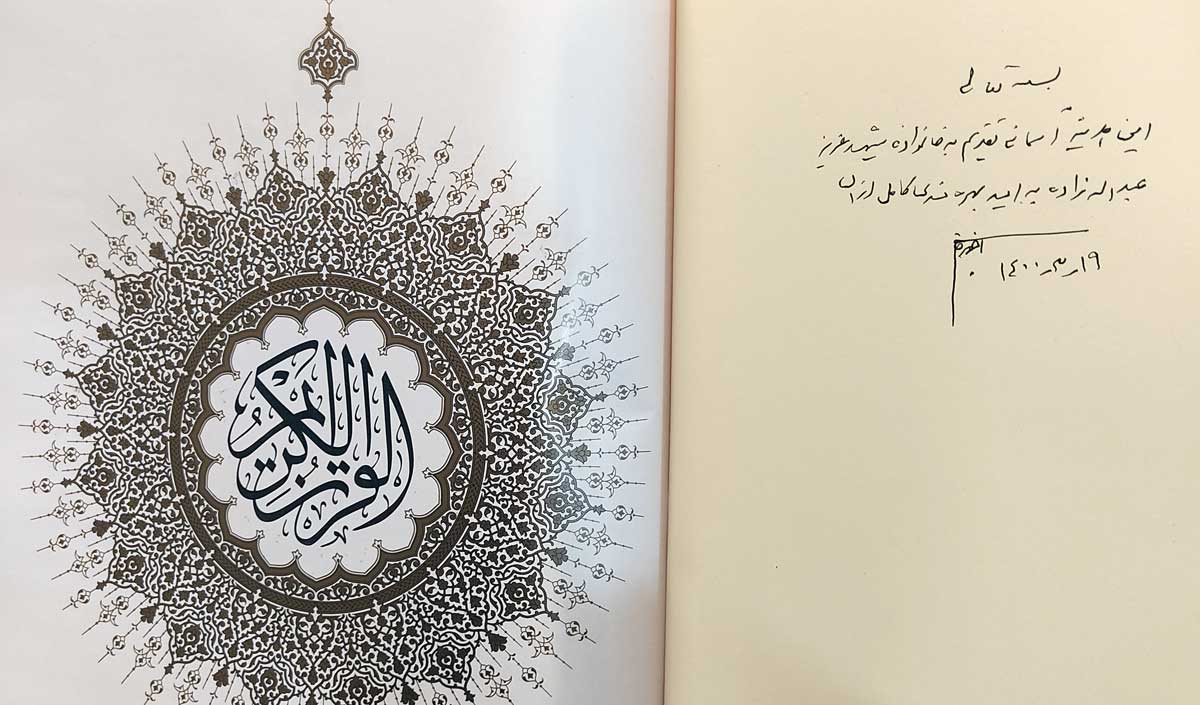 القرآن الكريم
بسمه تعالی
این هدیهٔ آسمانی تقدیم به خانواده شهید عزیز
عبداله زاده به امید بهره مندی کامل از آن
۱۴۰۰